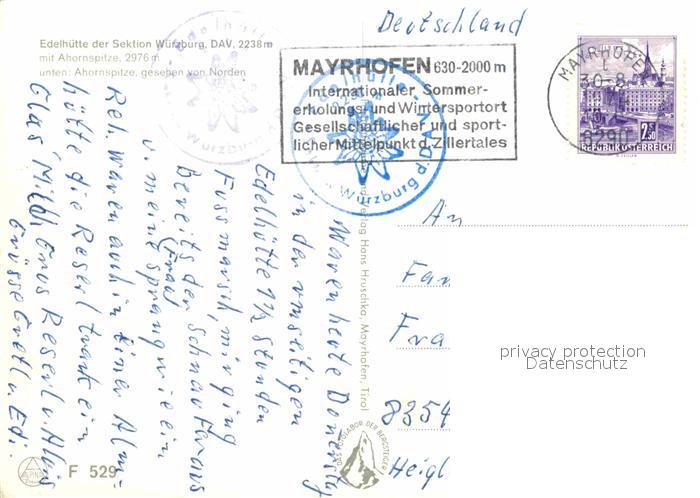 Deutschland
Edelhütte der Sektion Würzburg, DAV, 2238 m
mit Ahornspitze, 2976 m
unten: Ahornspitze, gesehen von Norden
MAYRHOFEN 630-2000 m
Internationaler Sommer-
erholungs- und Wintersportort
Gesellschaftlicher und sport-
licher Mittelpunkt d. Zillertales
MAYRHOFEN
30.-8.
6290
2.50
REPUBLIK ÖSTERREICH
Edelhütte
Würzburg d. DAV
Waren heute Donerstg
in der umseitigen
Edelhütte 1½ Stunden
Fussmarsch, mir ging
Bereits der Schnauf aus
(Frau)
u. meine sprang wie ein
Reh. Waren auch in einer Alm-
hütte die Reserl trank ein
Glas Milch, Grus Reserl u. Alois
Grüsse Gretl u. Edi.
Hans Hruschka, Mayrhofen, Tirol
DAS FOTOLABOR DER BERGSTEIGER
An
Fam
Fra
8354
Heigl
privacy protection
Datenschutz
F 529